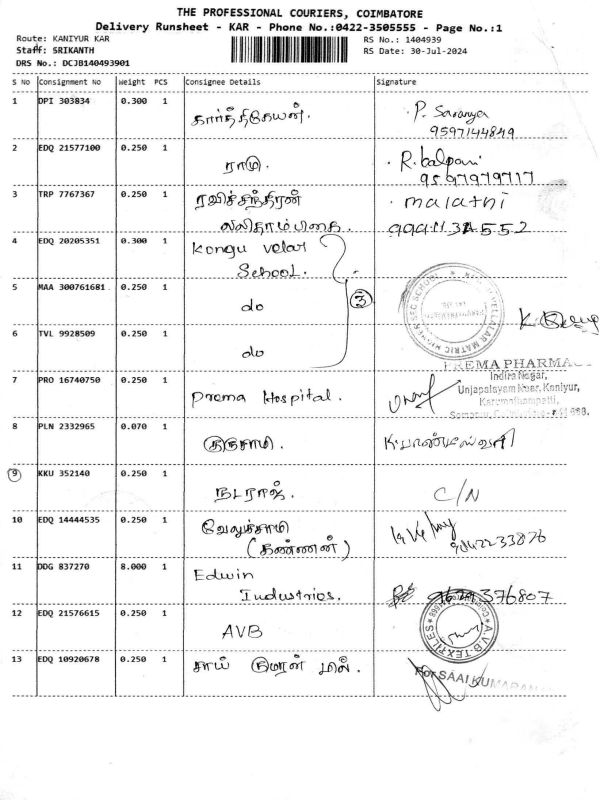 THE PROFESSIONAL COURIERS, COIMBATORE
Delivery Runsheet - KAR - Phone No.:0422-3505555 - Page No.:1
Route: KANIYUR KAR
RS No.: 1404939
Staff: SRIKANTH
RS Date: 30-Jul-2024
DRS No.: DCJB140493901
S No Consignment No Weight PCS Consignee Details Signature
1 DPI 303834 0.300 1 கார்த்திகேயன். P. Saranya
9597144849
2 EDQ 21577100 0.250 1 ராமு. R. kalpani
9597979717
3 TRP 7767367 0.250 1 ரவிச்சந்திரன் malathi
லலிதாம்பிகை.
4 EDQ 20205351 0.300 1 Kongu velar
School.
5 MAA 300761681 0.250 1 do ③
6 TVL 9928509 0.250 1 do
PREMA PHARMA
7 PRO 16740750 0.250 1 Prema Hospital.
Indira Nagar,
Unjapalayam Near, Kaniyur,
Karumathampatti,
8 PLN 2332965 0.070 1 திருசாமி.
9 KKU 352140 0.250 1 நடராஜ். C/N
10 EDQ 14444535 0.250 1 வேலுச்சாமி
(கண்ணன்) 9042233876
11 DDG 837270 8.000 1 Edwin
Industries. 376807
12 EDQ 21576615 0.250 1 AVB
A.V.B TEXTILES
13 EDQ 10920678 0.250 1 சாய் குமரன் மில்.
For SAAI KUMARAN